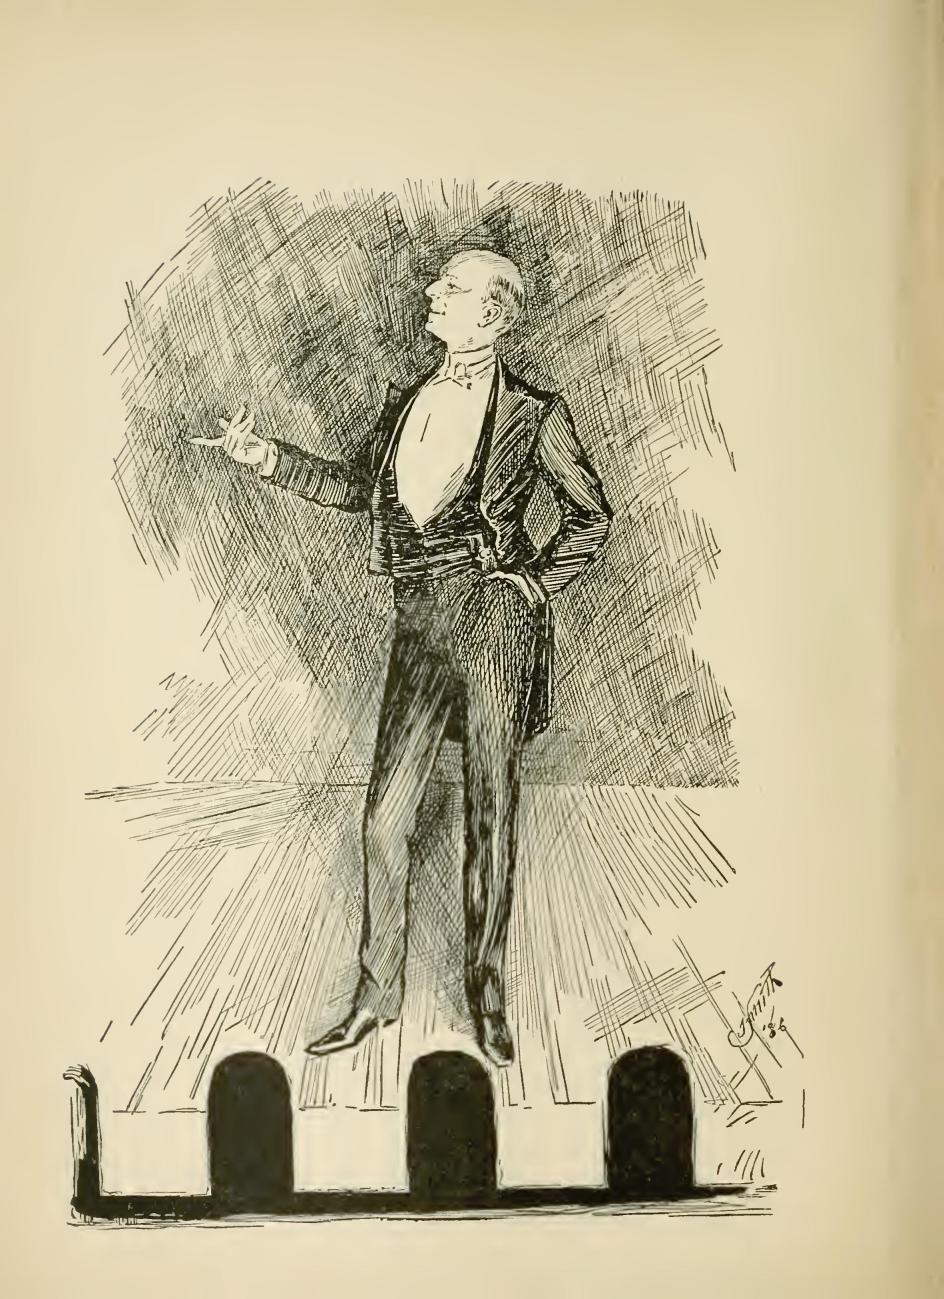 Smith
'86